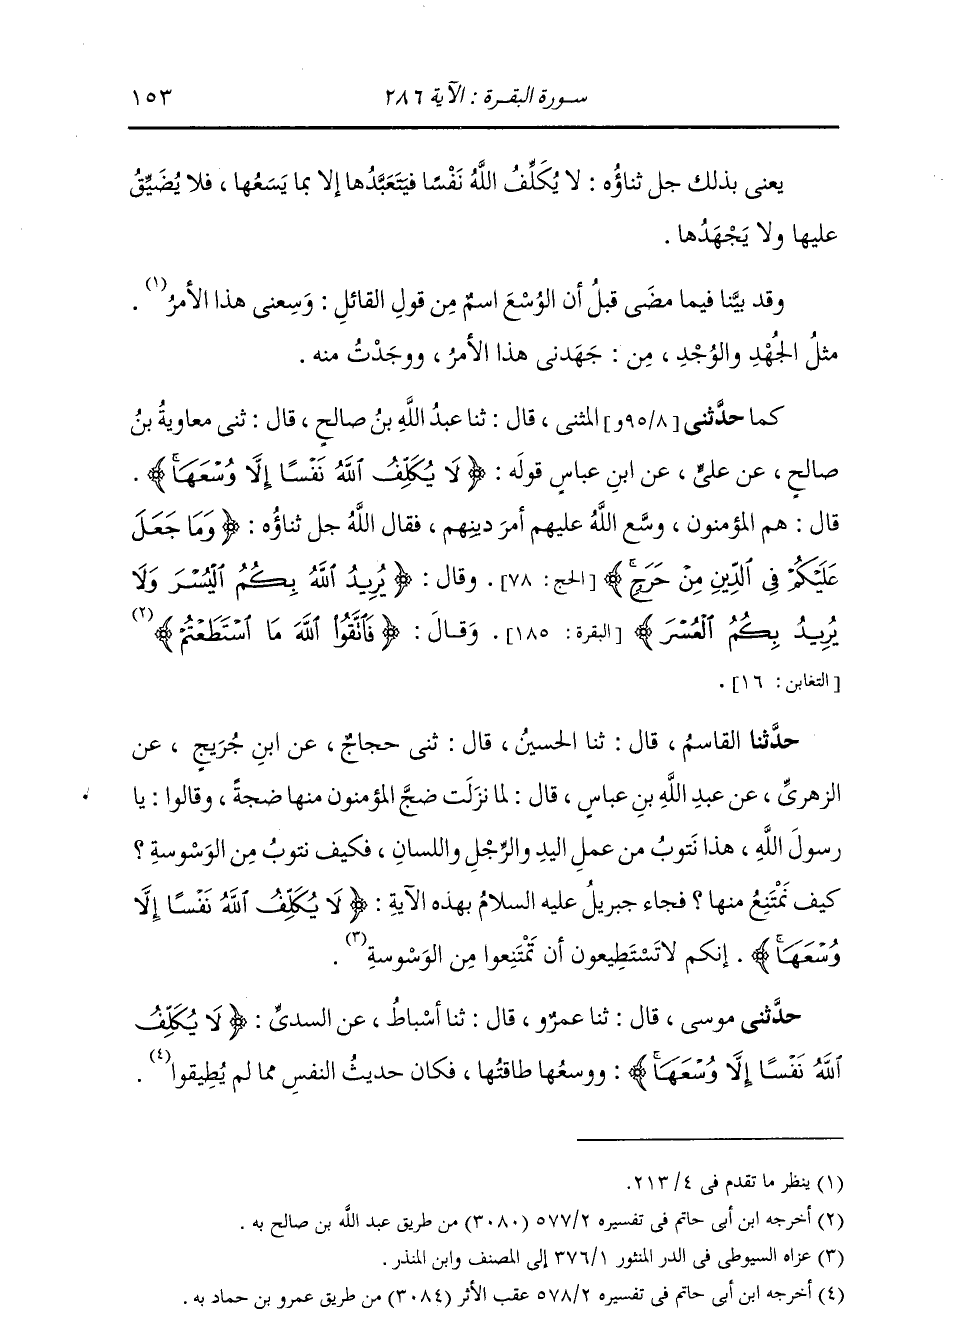 سورة البقرة : الآية ٢٨٦
١٥٣
يعنى بذلك جل ثناؤُه : لا يُكَلِّفُ اللَّهُ نَفْسًا فيَتَعَبَّدُها إلا بما يَسَعُها ، فلا يُضَيِّقُ
عليها ولا يَجْهَدُها .
وقد بيَّنا فيما مضَى قبلُ أن الوُسْعَ اسمٌ مِن قولِ القائلِ : وَسِعنى هذا الأمرُ(١) .
مثلُ الجُهْدِ والوُجْدِ ، مِن : جَهَدنى هذا الأمرُ ، ووجَدْتُ منه .
كما حدَّثنى [٩٥/٨و] المثنى ، قال : ثنا عبدُ اللَّهِ بنُ صالحٍ ، قال : ثنى معاويةُ بنُ
صالحٍ ، عن علىٍّ ، عن ابنِ عباسٍ قولَه : ﴿ لَا يُكَلِّفُ ٱللَّهُ نَفْسًا إِلَّا وُسْعَهَاۚ ﴾ .
قال : هم المؤمنون ، وسَّع اللَّهُ عليهم أمرَ دينِهم ، فقال اللَّهُ جل ثناؤُه : ﴿ وَمَا جَعَلَ
عَلَيْكُمْ فِى ٱلدِّينِ مِنْ حَرَجٍۚ ﴾ [الحج: ٧٨]. وقال : ﴿ يُرِيدُ ٱللَّهُ بِكُمُ ٱلْيُسْرَ وَلَا
يُرِيدُ بِكُمُ ٱلْعُسْرَ ﴾ [البقرة: ١٨٥]. وَقَالَ : ﴿ فَٱتَّقُوا۟ ٱللَّهَ مَا ٱسْتَطَعْتُمْ ﴾(٢)
[التغابن: ١٦] .
حدَّثنا القاسمُ ، قال : ثنا الحسينُ ، قال : ثنى حجاجٌ ، عن ابنِ جُرَيجٍ ، عن
الزهرىِّ ، عن عبدِ اللَّهِ بنِ عباسٍ ، قال : لما نزَلَت ضجَّ المؤمنون منها ضجةً ، وقالوا : يا
رسولَ اللَّهِ ، هذا نَتوبُ من عملِ اليدِ والرِّجْلِ واللسانِ ، فكيف نتوبُ مِن الوَسْوسةِ ؟
كيف نَمْتَنِعُ منها ؟ فجاء جبريلُ عليه السلامُ بهذه الآيةِ : ﴿ لَا يُكَلِّفُ ٱللَّهُ نَفْسًا إِلَّا
وُسْعَهَاۚ ﴾ . إنكم لا تَسْتَطِيعون أن تَمْتَنِعوا مِن الوَسْوسةِ(٣) .
حدَّثنى موسى ، قال : ثنا عمرٌو ، قال : ثنا أسْباطُ ، عن السدىِّ : ﴿ لَا يُكَلِّفُ
ٱللَّهُ نَفْسًا إِلَّا وُسْعَهَاۚ ﴾ : ووسعُها طاقتُها ، فكان حديثُ النفسِ مما لم يُطِيقوا(٤) .
(١) ينظر ما تقدم فى ٢١٣/٤.
(٢) أخرجه ابن أبى حاتم فى تفسيره ٥٧٧/٢ (٣٠٨٠) من طريق عبد اللَّه بن صالح به .
(٣) عزاه السيوطى فى الدر المنثور ٣٧٦/١ إلى المصنف وابن المنذر .
(٤) أخرجه ابن أبى حاتم فى تفسيره ٥٧٨/٢ عقب الأثر (٣٠٨٤) من طريق عمرو بن حماد به .